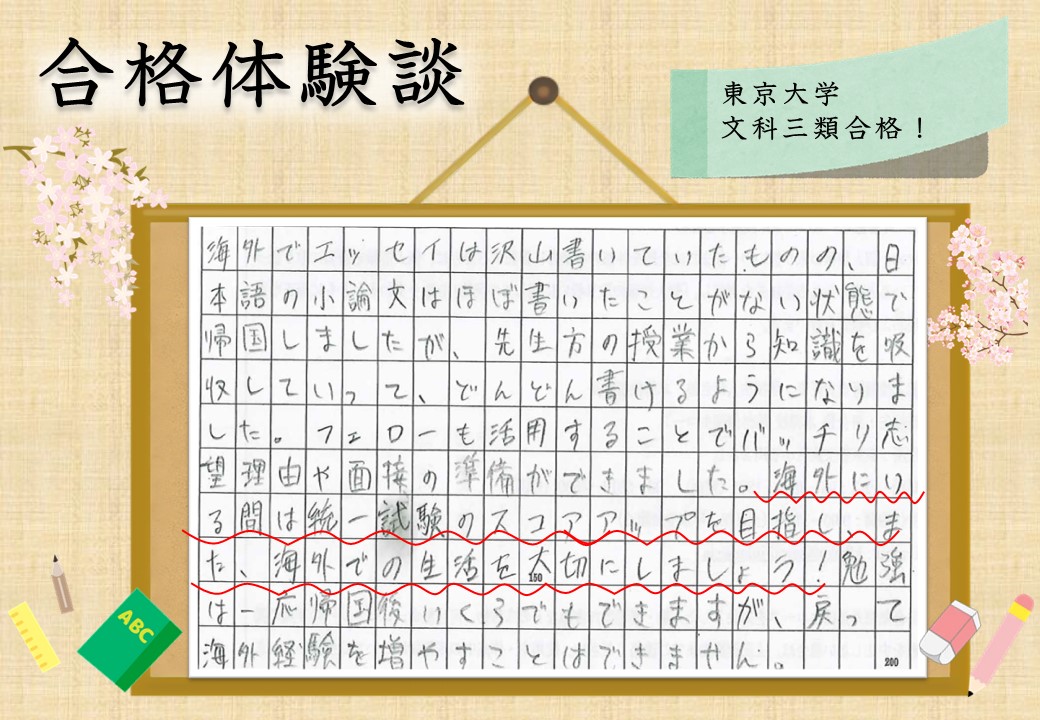 合格体験談
東京大学
文科三類合格！
海外でエッセイは沢山書いていたものの、日
本語の小論文はほぼ書いたことがない状態で
帰国しましたが、先生方の授業から知識を吸
収していって、どんどん書けるようになりま
した。フェローも活用することでバッチリ志
望理由や面接の準備ができました。海外にい
る間は統一試験のスコアアップを目指し、ま
た、海外での生活を大切にしましょう！勉強
150
は一応帰国後いくらでもできますが、戻って
海外経験を増やすことはできません。
200
ABC